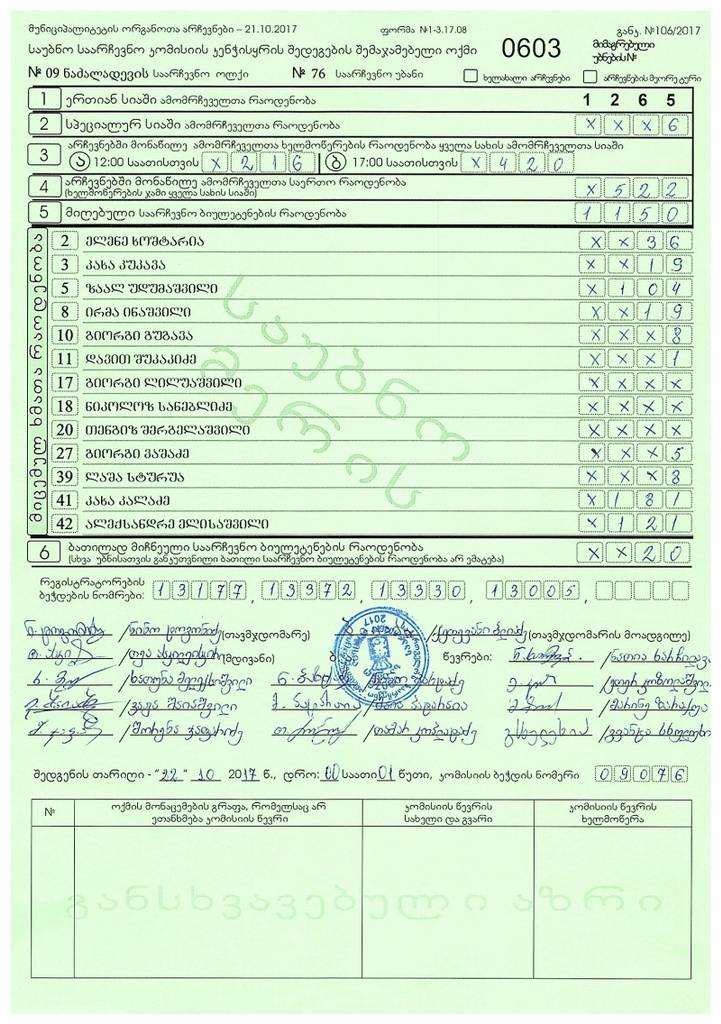 მუნიციპალიტეტის ორგანოთა არჩევნები – 21.10.2017 ფორმა №1-3.17.08 განკ. №106/2017
საუბნო საარჩევნო კომისიის კენჭისყრის შედეგების შემაჯამებელი ოქმი 0603 მიმაგრებული უბნების№
№ 09 ნაძალადევის საარჩევნო ოლქი № 76 საარჩევნო უბანი ხელახალი არჩევნები არჩევნების მეორე ტური
1 ერთიან სიაში ამომრჩეველთა რაოდენობა 1 2 6 5
2 სპეციალურ სიაში ამომრჩეველთა რაოდენობა X X X 6
3 არჩევნებში მონაწილე ამომრჩეველთა ხელმოწერების რაოდენობა ყველა სახის ამომრჩეველთა სიაში
ა 12:00 საათისთვის X 2 1 6 ბ 17:00 საათისთვის X 4 2 0
4 არჩევნებში მონაწილე ამომრჩეველთა საერთო რაოდენობა X 5 2 2
(ხელმოწერების ჯამი ყველა სახის სიაში)
5 მიღებული საარჩევნო ბიულეტენების რაოდენობა 1 1 5 0
მიცემულ ხმათა რაოდენობა
2 ელენე ხოშტარია X X 3 6
3 კახა კუკავა X X 1 9
5 ზაალ უდუმაშვილი X 1 0 4
8 ირმა ინაშვილი X X 1 9
10 გიორგი გუგავა X X X 8
11 დავით შუკაკიძე X X X 1
17 გიორგი ლილუაშვილი X X X X
18 ნიკოლოზ სანებლიძე X X X X
20 თენგიზ შერგელაშვილი X X X X
27 გიორგი ვაშაძე X X X 5
39 ლაშა სტურუა X X X 8
41 კახა კალაძე X 1 8 1
42 ალექსანდრე ელისაშვილი X 1 2 1
საუბნო
მერის
6 ბათილად მიჩნეული საარჩევნო ბიულეტენების რაოდენობა X X 2 0
(სხვა უბნისათვის განკუთვნილი ბათილი საარჩევნო ბიულეტენების რაოდენობა არ ემატება)
რეგისტრატორების
ბეჭდების ნომრები: 1 3 1 7 7 , 1 3 9 7 2 , 1 3 3 3 0 , 1 3 0 0 5 ,
(თავმჯდომარე) (თავმჯდომარის მოადგილე)
(მდივანი) წევრები:
შედგენის თარიღი - "22" 10 2017 წ., დრო: 00 საათი 01 წუთი, კომისიის ბეჭდის ნომერი 0 9 0 7 6
№ ოქმის მონაცემების გრაფა, რომელსაც არ ეთანხმება კომისიის წევრი კომისიის წევრის სახელი და გვარი კომისიის წევრის ხელმოწერა
განსხვავებული აზრი